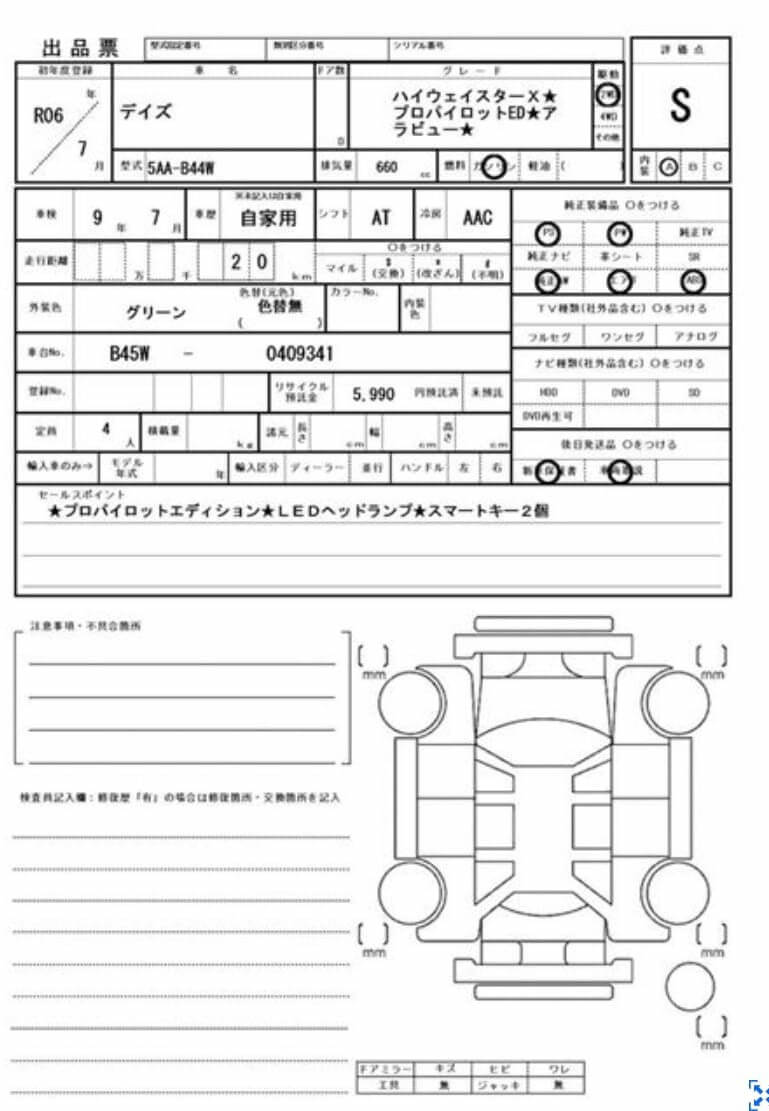 出品票 型式認定番号 類別区分番号 シリアル番号 評価点
初年度登録 車名 ドア数 グレード 駆動
R06 年 7 月
デイズ
D
ハイウェイスターX★
プロパイロットED★ア
ラビュー★
2WD
4WD
その他
S
型式 5AA-B44W 排気量 660 cc 燃料 ガソリン 軽油 ( ) 内装 A B C
車検 9 年 7 月 車歴 ※未記入は自家用 自家用 シフト AT 冷房 AAC
純正装備品 ○をつける
PS PW 純正TV
純正ナビ 革シート SR
純正AW エアB ABS
走行距離 万 千 2 0 km ○をつける
マイル $ (交換) * (改ざん) # (不明)
TV種類(社外品含む) ○をつける
フルセグ ワンセグ アナログ
外装色 グリーン 色替(元色) 色替無 ( ) カラーNo. 内装色
車台No. B45W - 0409341
ナビ種類(社外品含む) ○をつける
HDD DVD SD
DVD再生可
登録No. リサイクル預託金 5,990 円預託済 未預託
定員 4 人 積載量 kg 諸元 長さ cm 幅 cm 高さ cm
後日発送品 ○をつける
新車保証書 車両取説
輸入車のみ→ モデル年式 年 輸入区分 ディーラー 並行 ハンドル 左 右
セールスポイント
★プロパイロットエディション★LEDヘッドランプ★スマートキー2個
注意事項・不具合箇所
検査員記入欄:修復歴「有」の場合は修復箇所・交換箇所を記入
mm
mm
mm
mm
mm
ドアミラー キズ ヒビ ワレ
工具 無 ジャッキ 無